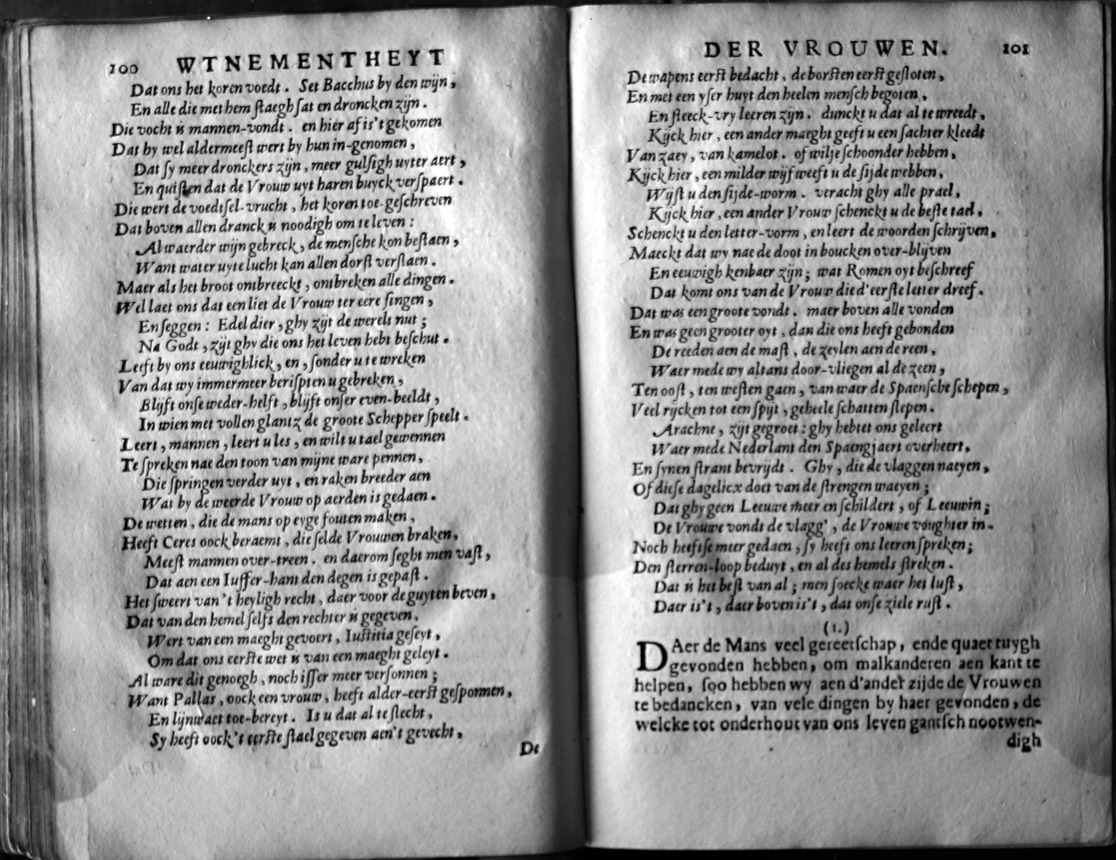 100 WTNEMENTHEYT
Dat ons het koren voedt. Set Bacchus by den wijn,
En alle die met hem staegh sat en droncken zijn.
Die vocht is mannen-vondt. en hier af is't gekomen
Dat hy wel aldermeest wert by hun in-genomen,
Dat sy meer dronckers zijn, meer gulsigh uyter aert,
En quisten dat de Vrouw uyt haren buyck verspaert.
Die wert de voedtsel-vrucht, het koren toe-geschreven
Dat boven allen dranck is noodigh om te leven:
Al waerder wijn gebreck, de mensche kon bestaen,
Want water uyte lucht kan allen dorst verslaen.
Maer als het broot ontbreeckt, ontbreken alle dingen.
Wel laet ons dat een liet de Vrouw ter eere singen,
En seggen: Edel dier, ghy zijt de werelt nut;
Na Godt, zijt ghy die ons het leven hebt beschut.
Leeft by ons eeuwighlick, en, sonder u te wreken
Van dat wy immermeer berispten u gebreken,
Blijft onse weder-helft, blijft onser even-beeldt,
In wien met vollen glantz de groote Schepper speelt.
Leert, mannen, leert u les, en wilt u tael gewennen
Te spreken nae den toon van mijne ware pennen,
Die springen verder uyt, en raken breeder aen
Wat by de weerde Vrouw op aerden is gedaen.
De wetten, die de mans op eyge fouten maken,
Heeft Ceres oock beraemt, die selde Vrouwen braken,
Meest mannen over-treen. en daerom seght men vast,
Dat aen een Iuffer-hant den degen is gepast.
Het sweert van't heyligh recht, daer voor de guyten beven,
Dat van den hemel selfs den rechter is gegeven,
Wert van een maeght gevoert, Iustitia geseyt,
Om dat ons eerste wet is van een maeght geleyt.
Al ware dit genoegh, noch isser meer versonnen;
Want Pallas, oock een vrouw, heeft alder-eerst gesponnen,
En lijnwaet toe-bereyt. Is u dat al te slecht,
Sy heeft oock't eerste stael gegeven aen't gevecht,
De
DER VROUWEN. 101
De wapens eerst bedacht, de borsten eerst gesloten,
En met een yser huyt den heelen mensch begoten,
En steeck-vry leeren zijn. dunckt u dat al te wreedt,
Kijck hier, een ander maeght geeft u een sachter kleedt
Van zaey, van kamelot. of wilje schoonder hebben,
Kijck hier, een milder wijf weeft u de sijde webben,
Wijst u den sijde-worm. veracht ghy alle prael,
Kijck hier, een ander Vrouw schenckt u de beste tael,
Schenckt u den letter-vorm, en leert de woorden schrijven,
Maeckt dat wy nae de doot in boucken over-blijven
En eeuwigh kenbaer zijn; wat Romen oyt beschreef
Dat komt ons van de Vrouw die d'eerste letter dreef.
Dat was een groote vondt. maer boven alle vonden
En was geen grooter oyt, dan die ons heeft gebonden
De reeden aen de mast, de zeylen aen de reen,
Waer mede wy altans door-vliegen al de zeen,
Ten oost, ten westen gaen, van waer de Spaensche schepen,
Veel rijcken tot een spijt, geheele schatten slepen.
Arachne, zijt gegroet: ghy hebtet ons geleert
Waer mede Nederlant den Spaengjaert overheert,
En synen strant bevrijdt. Ghy, die de vlaggen naeyen,
Of diese dagelicx doet van de strengen waeyen;
Dat ghy geen Leeuwe meer en schildert, of Leeuwin;
De Vrouwe vondt de vlagg', de Vrouwe voughter in.
Noch heeftse meer gedaen, sy heeft ons leeren spreken;
Den sterren-loop beduyt, en al des hemels streken.
Dat is het best van al; men soecke waer het lust,
Daer is't, daer boven is't, dat onse ziele rust.
(1.)
DAer de Mans veel gereetschap, ende quaet tuygh
gevonden hebben, om malkanderen aen kant te
helpen, soo hebben wy aen d'ander zijde de Vrouwen
te bedancken, van vele dingen by haer gevonden, de
welcke tot onderhout van ons leven gantsch nootwen-
digh